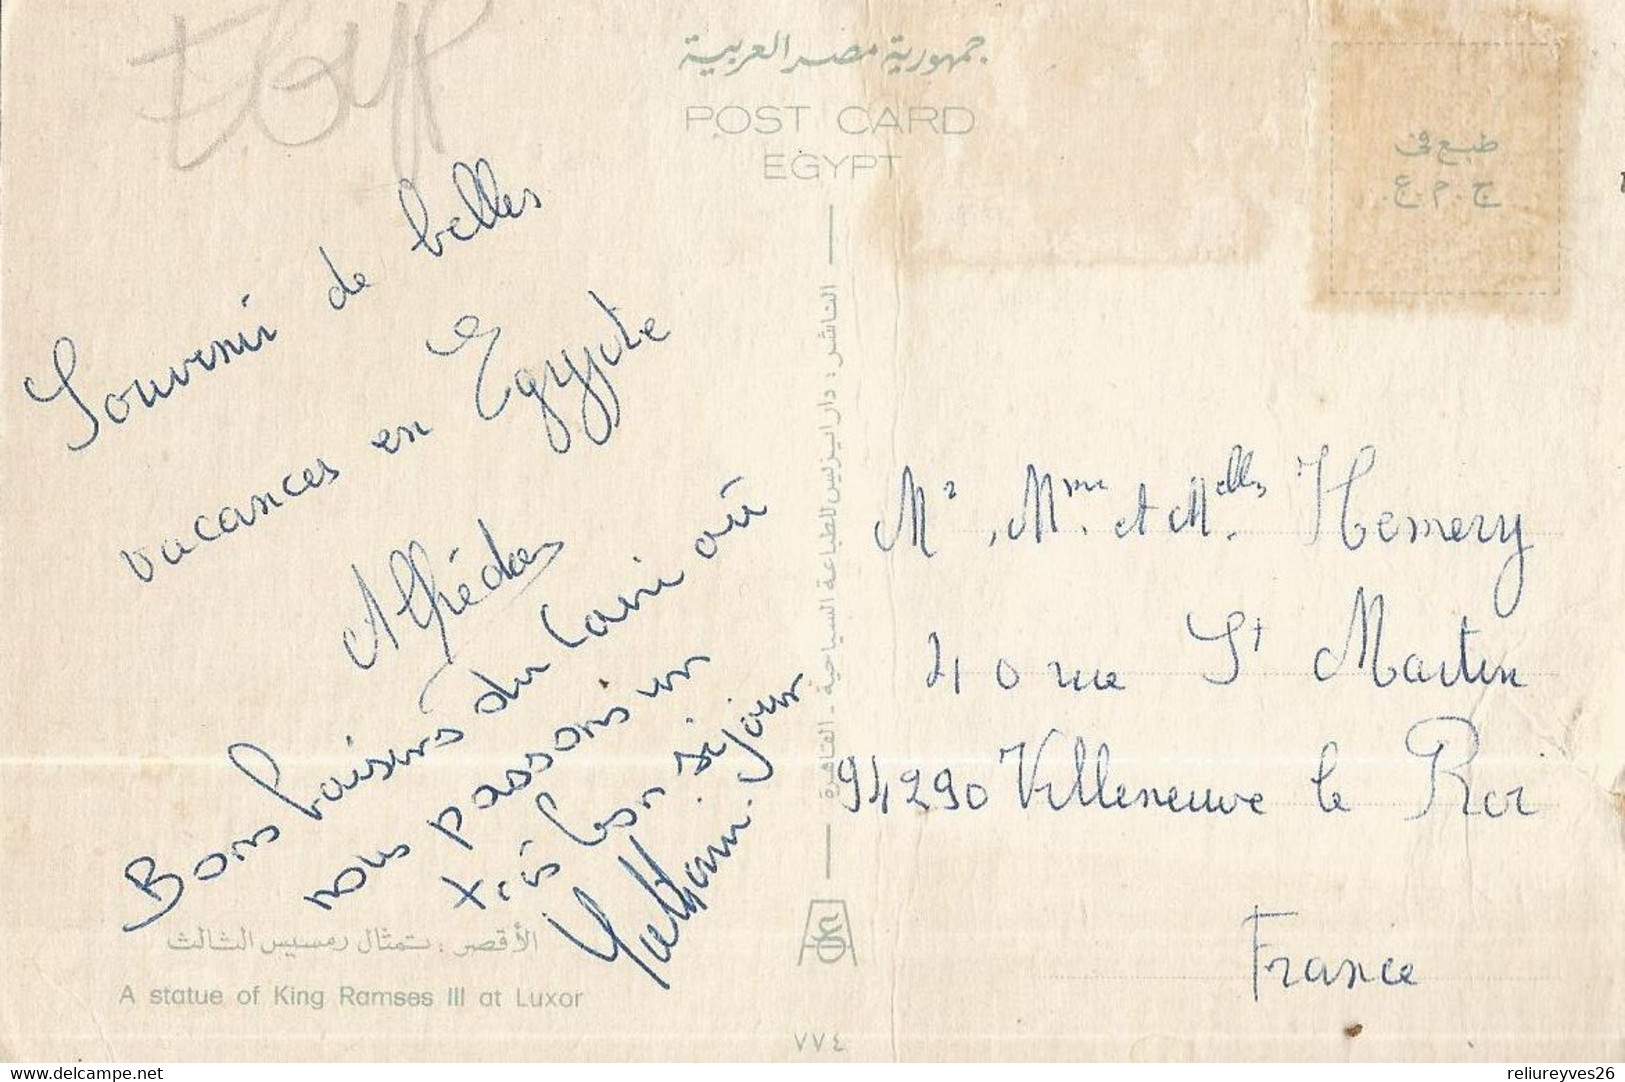 EGYP
جمهورية مصر العربية
POST CARD
EGYPT
طبع فى
ج.م.ع.
Souvenir de belles
vacances en Egypte
Bons baisers du Caire où
nous passons un
très bon séjour
الناشر: دار ايزيس للطباعة السياحية - القاهرة
Mr, Mme. et Melles. Hemery
40 rue St Martin
94290 Villeneuve le Roi
France
الأقصر: تمثال رمسيس الثالث
A statue of King Ramses III at Luxor
٧٧٤
delcampe.net
reliureyves26